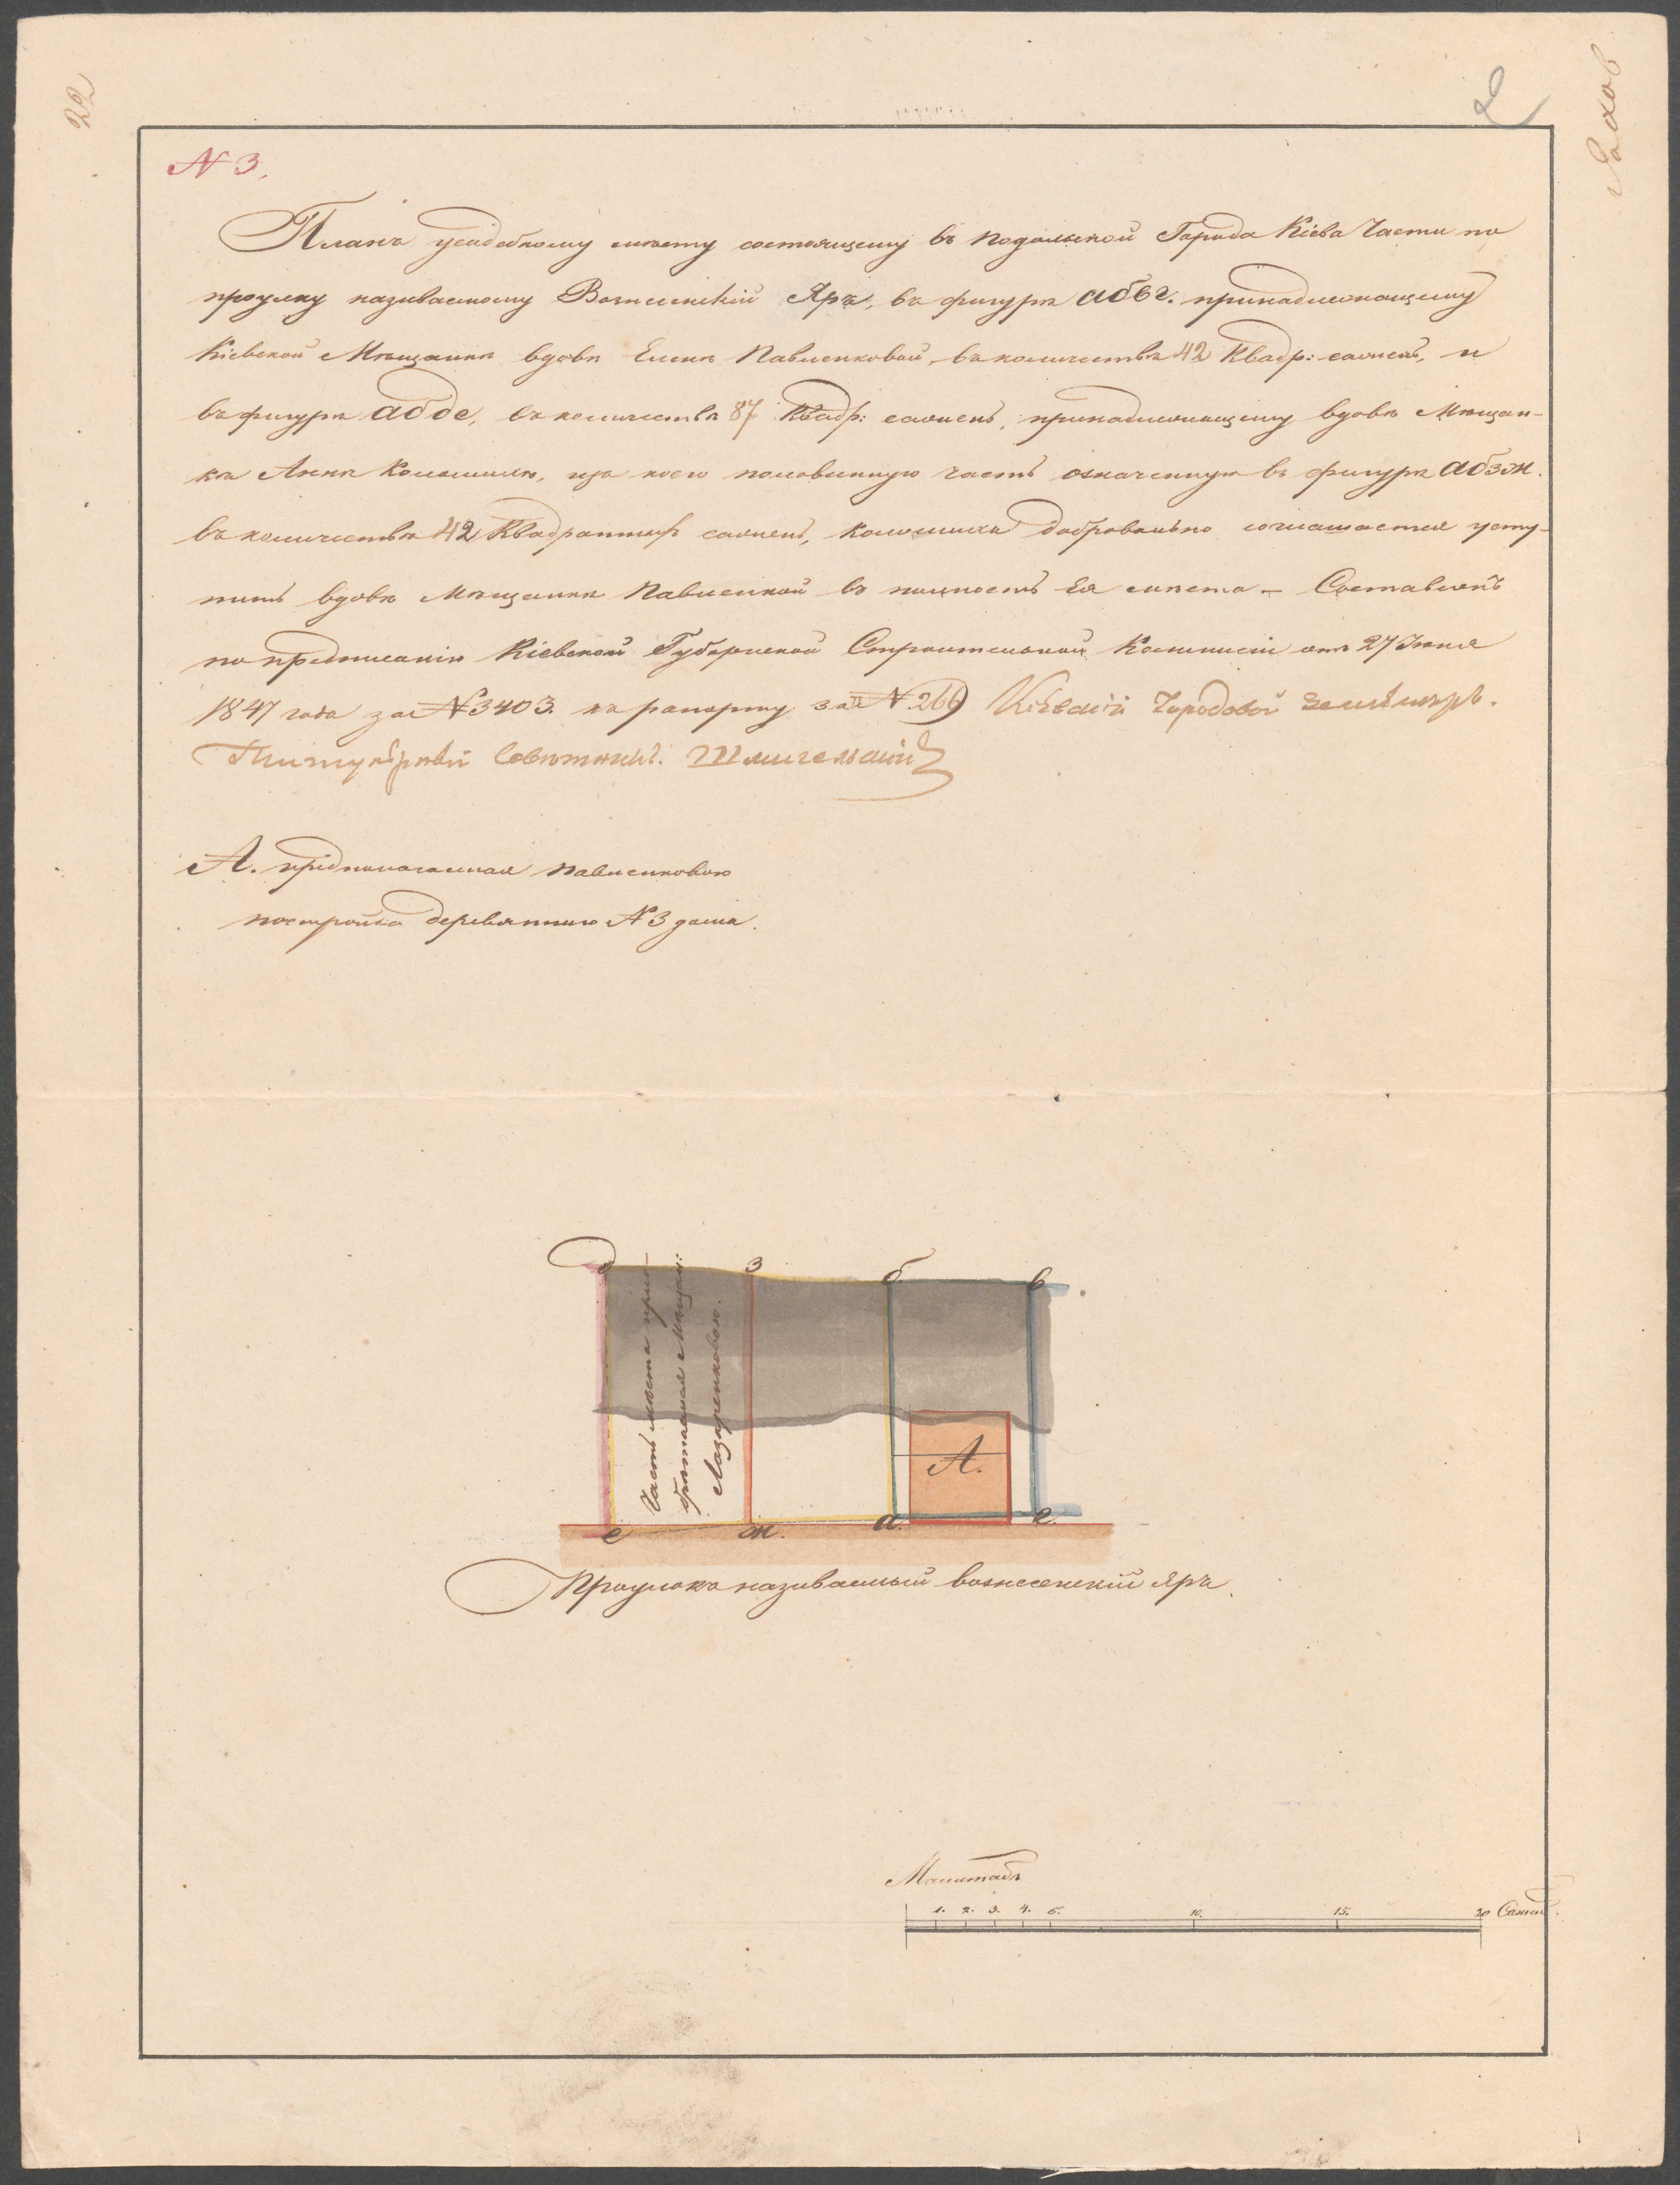 22
2
N 3.
Планъ усадебному мѣсту состоящему въ Подольской Города Кіева Части по
проулку называемому Вознесенскій Яръ, въ фигурѣ абвг. принадлежащему
Кіевской Мѣщанкѣ вдовѣ Еленѣ Павленковой, въ количествѣ 42 Квадр: сажень, и
въ фигурѣ абде, въ количествѣ 87 Квадр: сажень, принадлежащему вдовѣ Мѣщан-
кѣ Аннѣ, изъ коего половинную часть означенную въ фигурѣ абзж.
въ количествѣ 42 Квадратныхъ сажень, добровольно соглашается усту-
пить вдовѣ Мѣщанкѣ Павленковой въ полность Ея мѣста – Составленъ
по предписанію Кіевской Губернской Строительной Коммисіи отъ 27 Іюня
1847 года за N 3403. къ рапорту за N 266 Кіевскій Городовой Землемѣръ.
Титулярный Совѣтникъ. Шмигельскій
А. предполагаемая Павленковою
постройка деревянного N 3 дома.
д з б в
Часть мѣста прио-
брѣтаемая Мѣщан:
Лазаренковою.
А.
е ж. а. г.
Проулокъ называемый вознесенскій яръ.
Масштабъ
1. 2. 3. 4. 5. 10. 15. 20 Сажень.